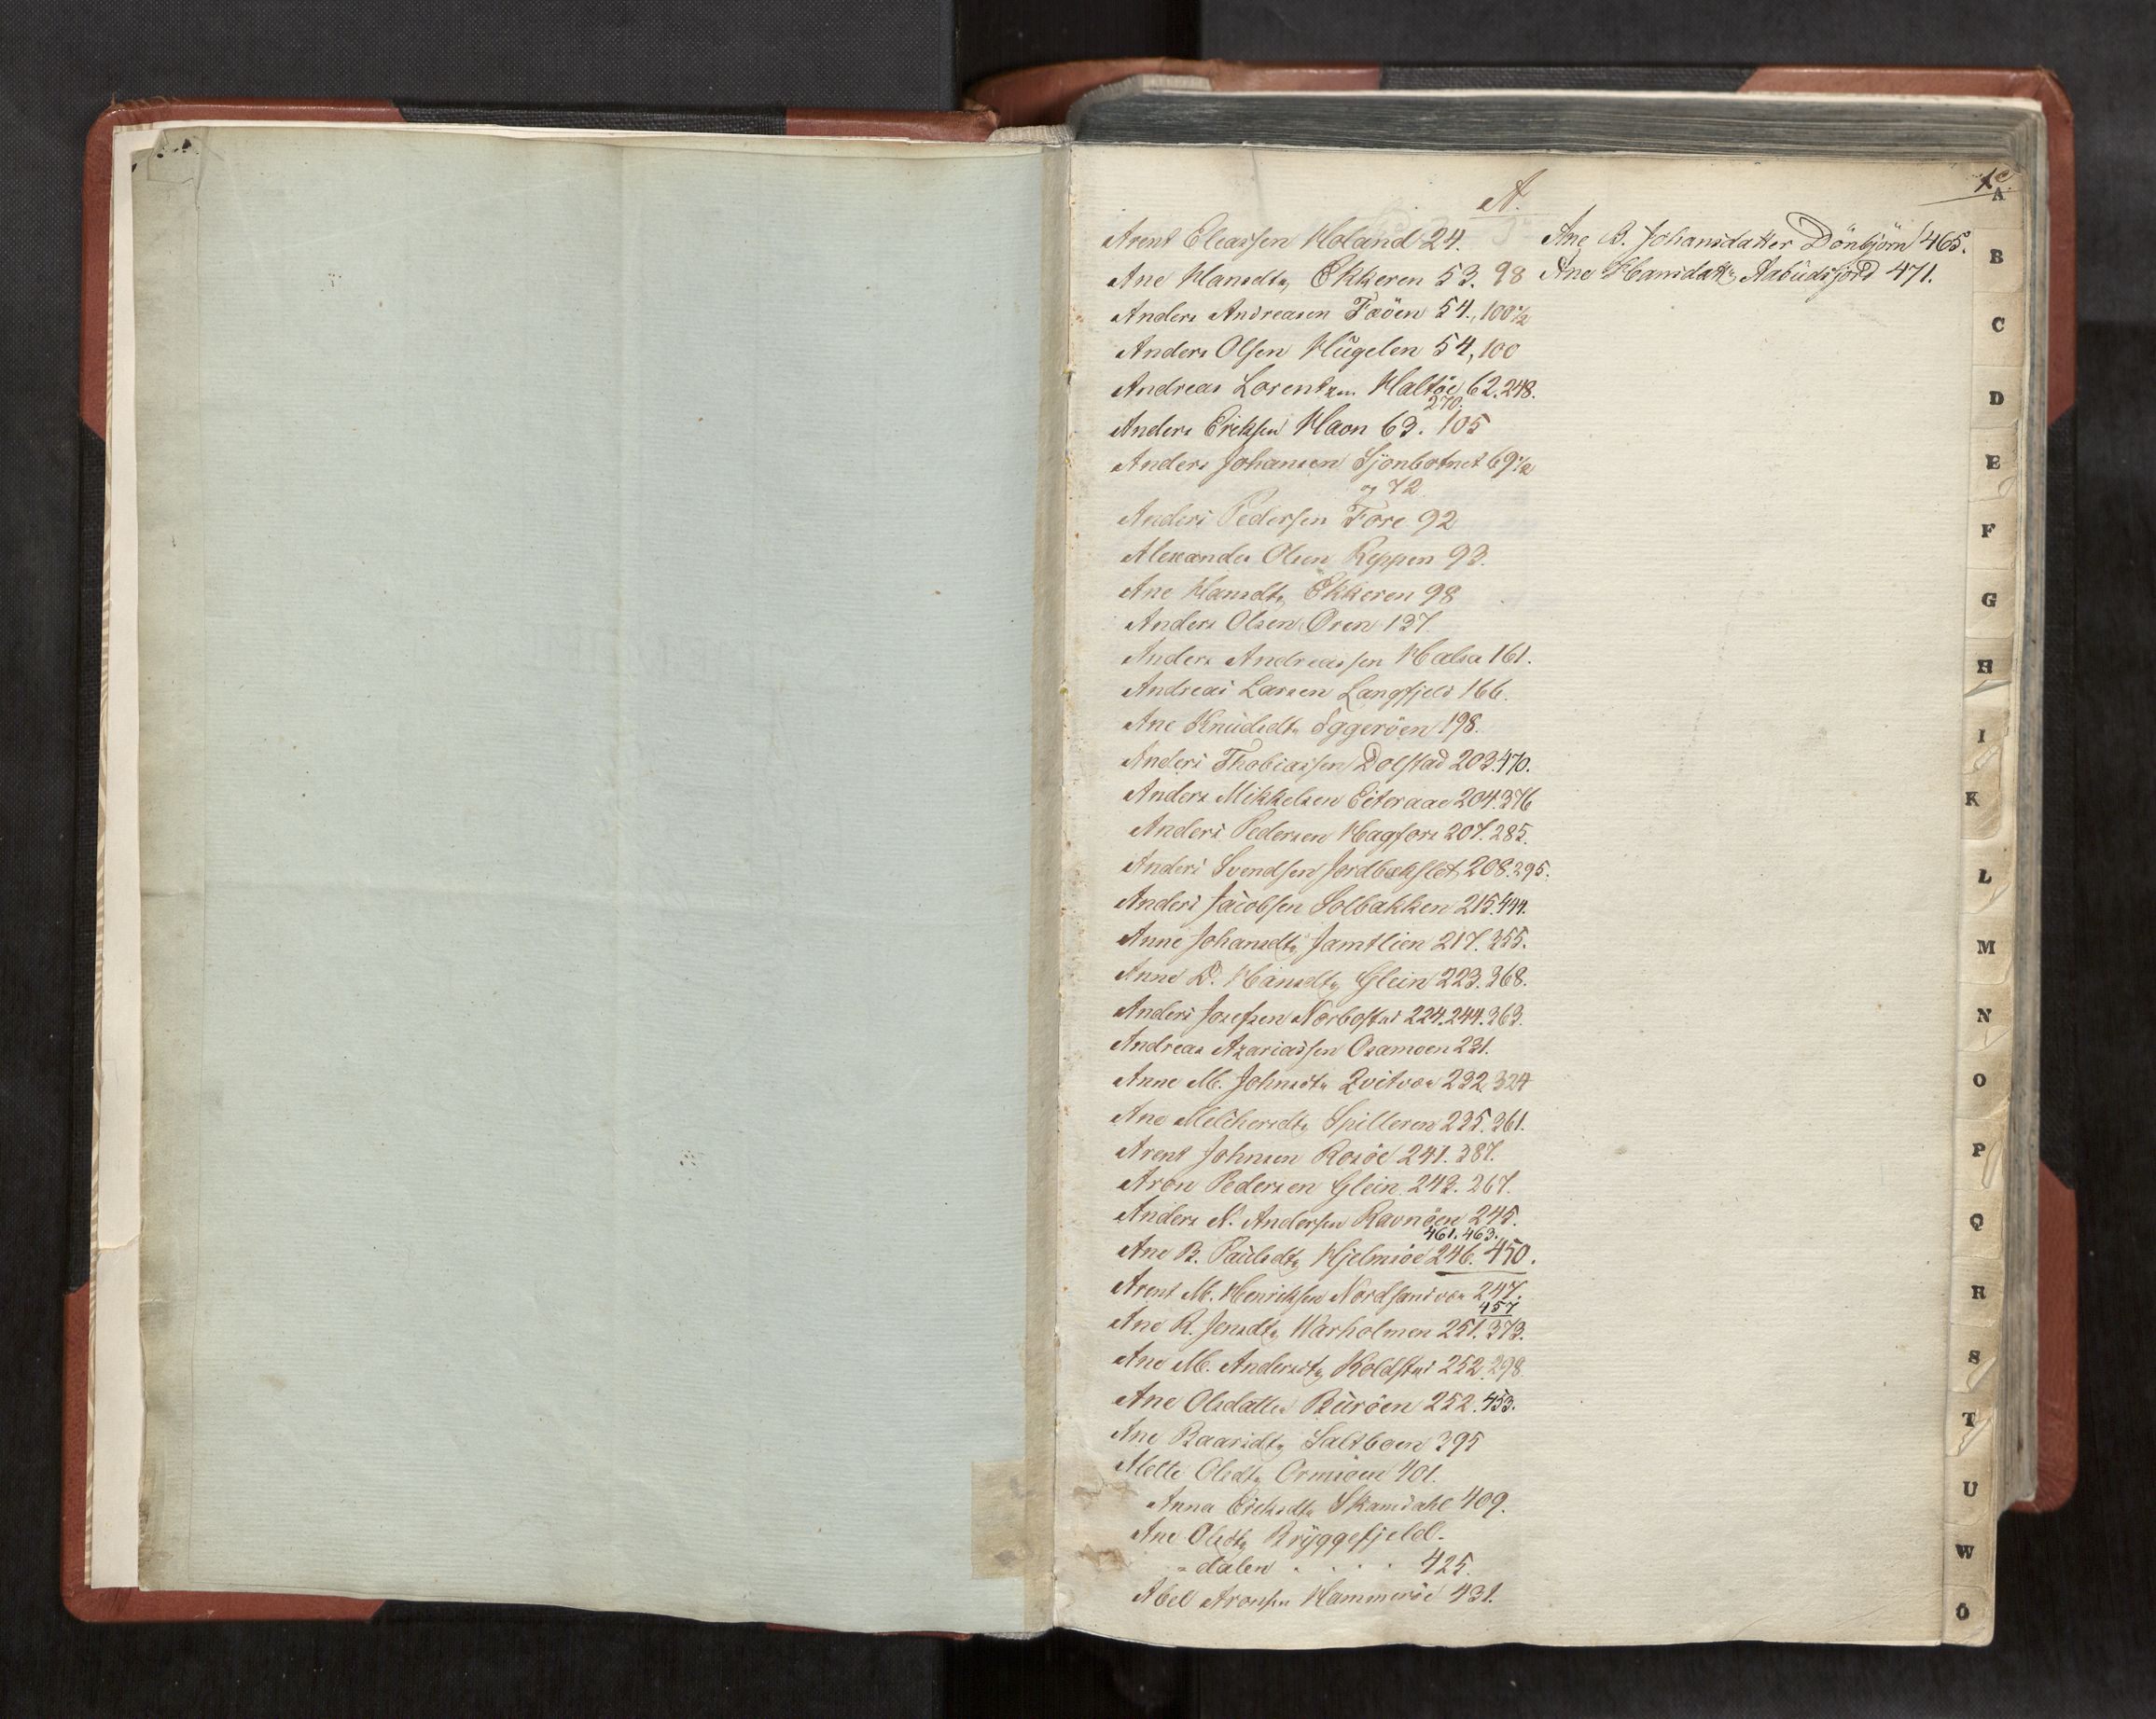 A.
Arent Eleassen Holand 24.
Ane Hansdtr Ekkeren 53. 98
Anders Andreasen Faöen 54., 100½
Anders Olsen Hugelen 54, 100
Andreas Lorentzen Haltöe 62. 248.
270.
Anders Eriksen Haon 63. 105
Anders Johansen Sjonbotnet 69½
og 72
Anders Pedersen Fore 92
Alexander Olsen Reppen 93.
Ane Hansdtr Ekkeren 98
Anders Olsen Øren 137
Anders Andreassen Halsa 161.
Andreas Larsen Langfjeld 166.
Ane Knudsdtr Iggeröen 198.
Anders Thobiassen Dolstad 203. 470.
Anders Mikkelsen Eiteraae 204. 376
Anders Pedersen Hagfors 207. 285.
Anders Svendsen Jordbækslet 208. 295.
Anders Jacobsen Solbakken 215. 444.
Anne Johansdtr Jamtlien 217. 355.
Anne D. Hansdtr Glein 223. 368.
Anders Josefsen Norbostad 224. 244. 363.
Andreas Azariassen Osamoen 231.
Anne M. Johnsdtr Qvitvær 232. 324
Ane Melchersdtr Spilleren 235. 361.
Arent Johnsen Rosöe 241. 387.
Aron Pedersen Glein 243. 267.
Anders N. Andersen Ravnöen 245.
461. 463.
Ane B. Paulsdtr Hjelmsöe 246. 450.
Arent M. Henriksen Nordsandvær 247.
457
Ane R. Jensdtr Warholmen 251. 373.
Ane M. Andersdtr Koldstad 252. 298
Ane Olsdatter Buröen 252. 453.
Ane Baarsdtr Saltboen 395
Alette Olsdtr Ormsöen 401.
Anna Eriksdtr Skamdahl 409.
Ane Olsdtr Bryggefjeld-
-dalen . . . . 425.
Abel Aronsen Hammeröe 431.
Ane B. Johansdatter Dönbjörn 465.
Ane Hansdattr Aabudsfjord 471.
A
B
C
D
E
F
G
H
I
K
L
M
N
O
P
Q
R
S
T
U
W
Ö